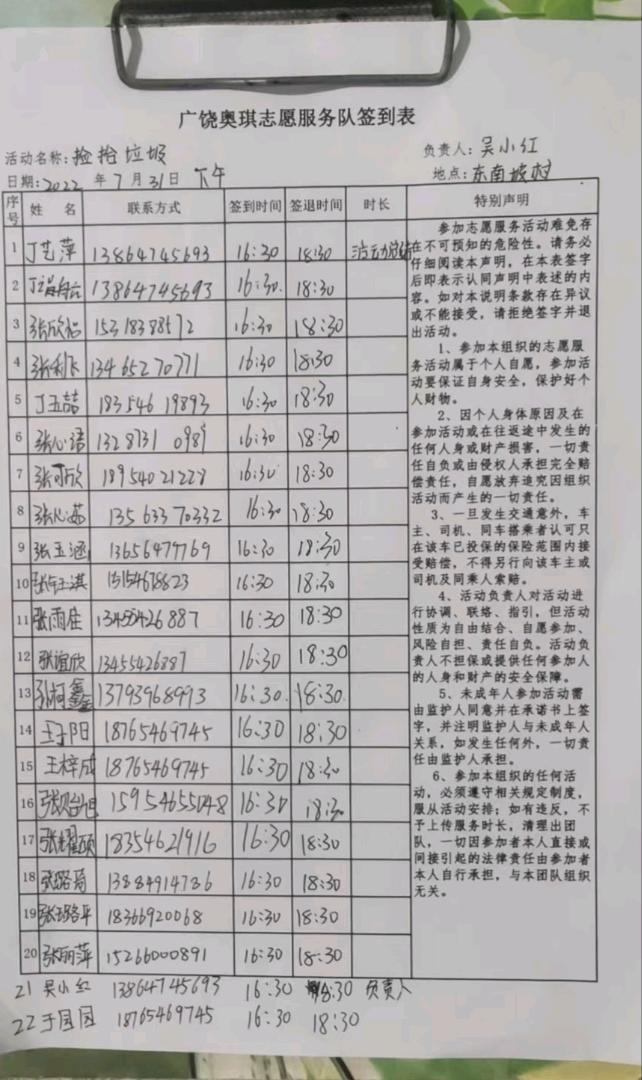 广饶奥琪志愿服务队签到表
活动名称：捡拾垃圾 负责人：吴小红
日期：2022年7月31日 下午 地点：东南坡村
序号 姓名 联系方式 签到时间 签退时间 时长 特别声明
1 丁艺萍 13864745693 16:30 18:30
2 13864745693 16:30 18:30
3 张欣怡 15318388572 16:30 18:30
4 张利飞 13465270771 16:30 18:30
5 丁玉喆 18354619893 16:30 18:30
6 张心语 16:30 18:30
7 张可欣 18954021228 16:30 18:30
8 张心茹 13563370332 16:30 18:30
9 张玉涵 13656477769 16:30 18:30
10 16:30 18:30
11 张雨佳 13455426887 16:30 18:30
12 张谊欣 13455426887 16:30 18:30
13 张柯鑫 13793968993 16:30 18:30
14 王子阳 18765469745 16:30 18:30
15 王梓成 18765469745 16:30 18:30
16 16:30 18:30
17 张耀硕 18354621916 16:30 18:30
18 13884914786 16:30 18:30
19 18366920068 16:30 18:30
20 张丽萍 15266000891 16:30 18:30
21 吴小红 13864745693 16:30 18:30 负责人
22 于园园 18765469745 16:30 18:30
参加志愿服务活动难免存
在不可预知的危险性。请务必
仔细阅读本声明，在本表签字
后即表示认同声明中表述的内
容。如对本说明条款存在异议
或不能接受，请拒绝签字并退
出活动。
1、参加本组织的志愿服
务活动属于个人自愿，参加活
动要保证自身安全，保护好个
人财物。
2、因个人身体原因及在
参加活动或在往返途中发生的
任何人身或财产损害，一切责
任自负或由侵权人承担完全赔
偿责任，自愿放弃追究因组织
活动而产生的一切责任。
3、一旦发生交通意外，车
主、司机、同车搭乘者认可只
在该车已投保的保险范围内接
受赔偿，不得另行向该车主或
司机及同乘人索赔。
4、活动负责人对活动进
行协调、联络、指引，但活动
性质为自由结合、自愿参加、
风险自担、责任自负。活动负
责人不担保或提供任何参加人
的人身和财产的安全保障。
5、未成年人参加活动需
由监护人同意并在承诺书上签
字，并注明监护人与未成年人
关系，如发生任何外，一切责
任由监护人承担。
6、参加本组织的任何活
动，必须遵守相关规定制度，
服从活动安排；如有违反，不
予上传服务时长，清理出团
队，一切因参加者本人直接或
间接引起的法律责任由参加者
本人自行承担，与本团队组织
无关。